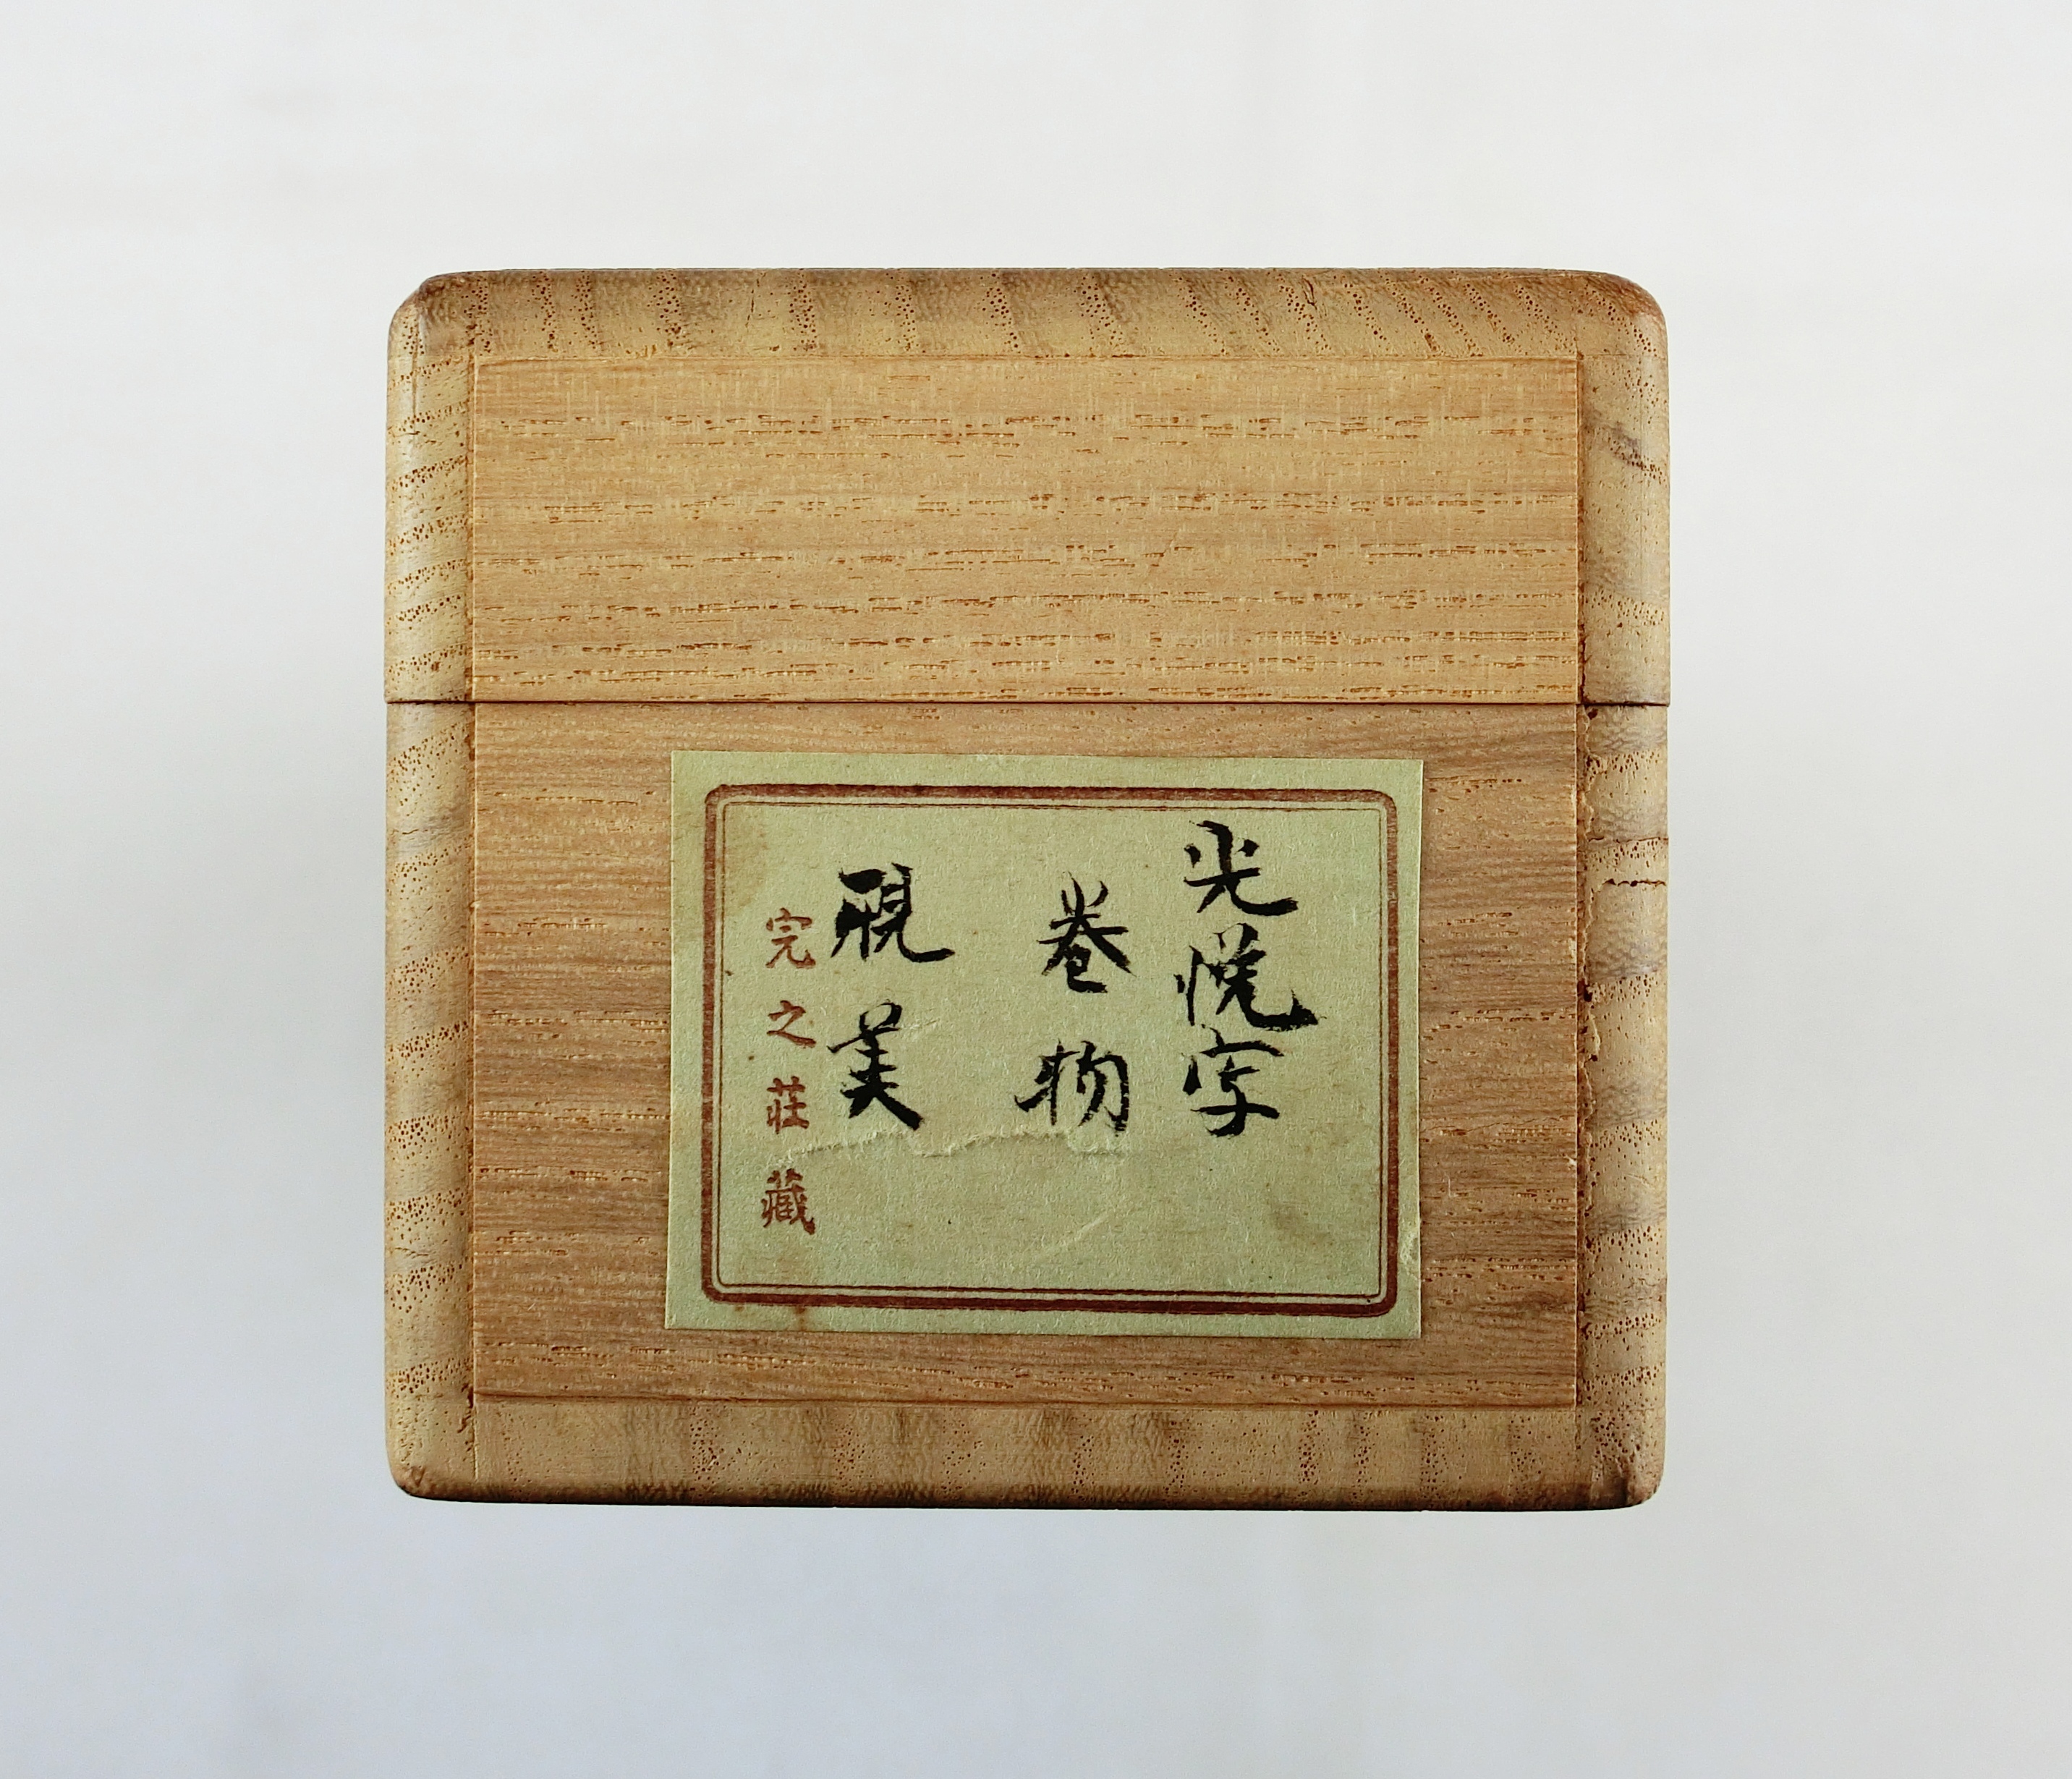 光悦字
巻物
美
完之荘藏